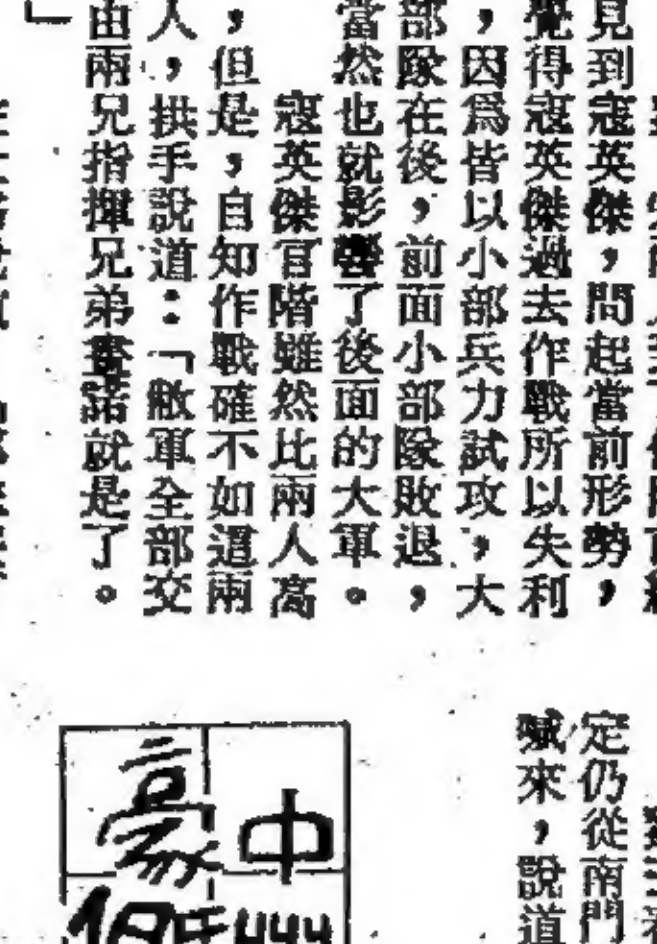 見到寇英傑，問起當前形勢，
覺得寇英傑過去作戰所以失利
，因爲皆以小部兵力試攻，大
部隊在後，前面小部隊敗退，
當然也就影響了後面的大軍。
寇英傑官階雖然比兩人高
，但是，自知作戰確不如這兩
人，拱手說道：「敝軍全部交
由兩兄指揮兄弟畫諾就是了。
」
定仍從南門
來，說道
中
豪